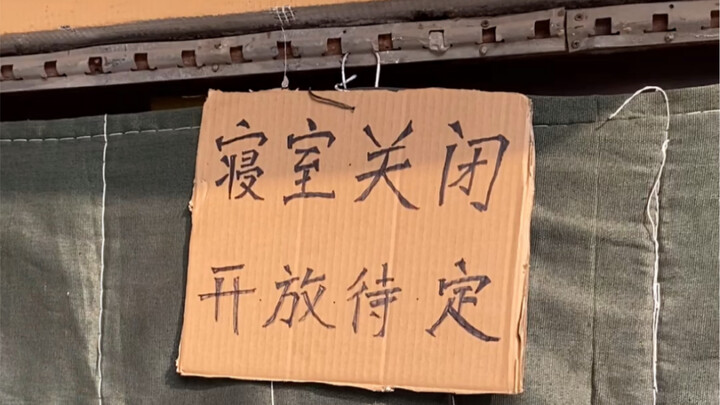 寝室关闭
开放待定